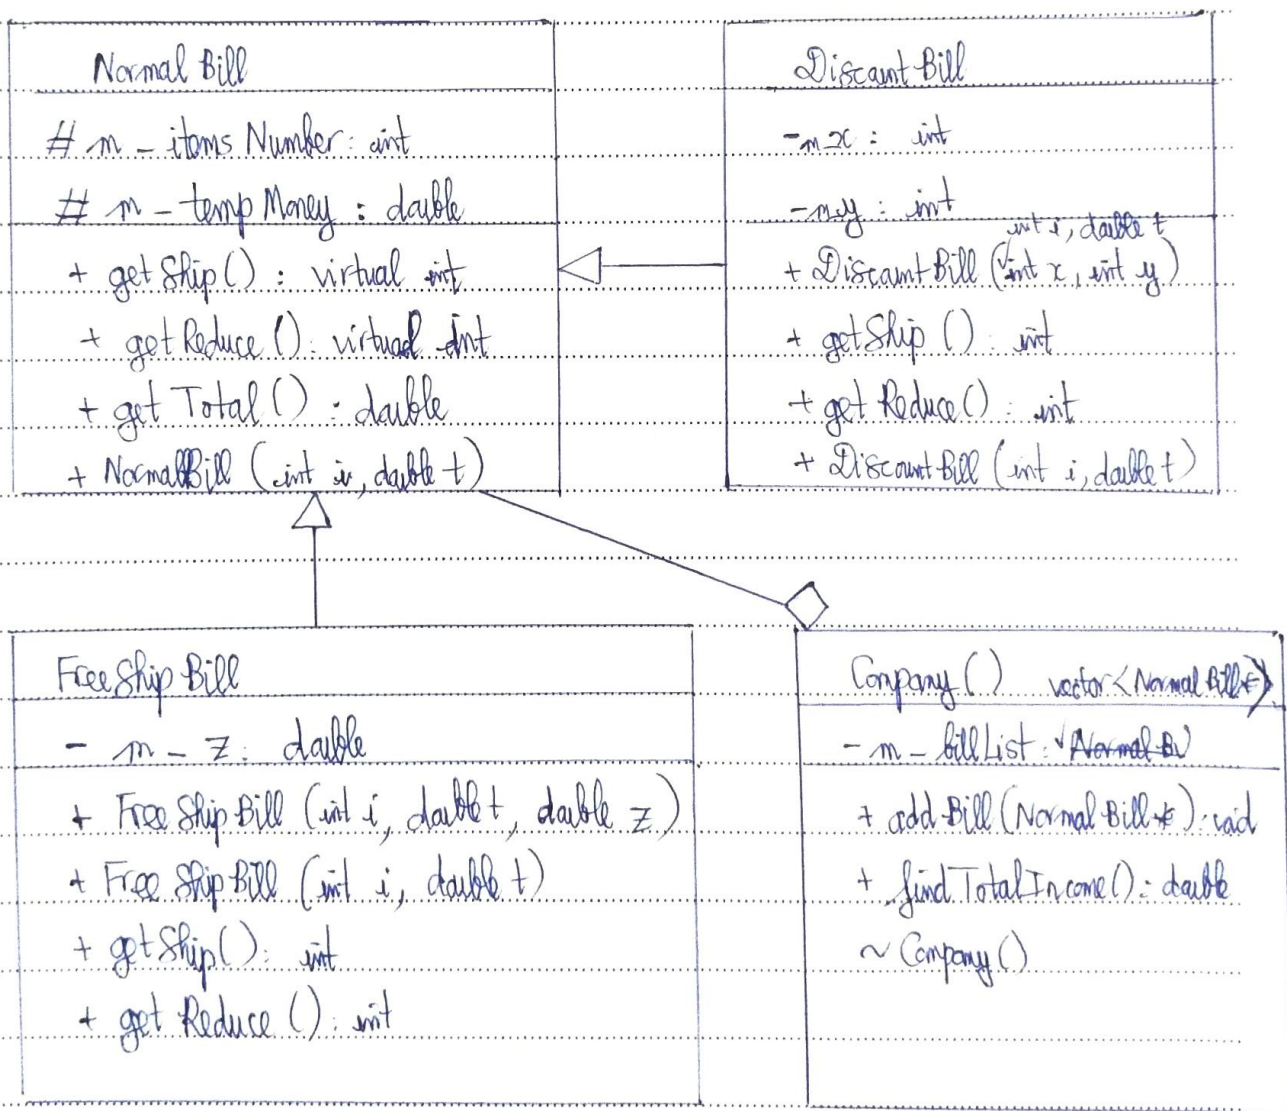 Normal Bill
# m - items Number: int
# m - temp Money : double
+ getShip() : virtual int
+ getReduce () : virtual int
+ get Total () : double
+ NormalBill (int i, double t)
Discount Bill
- m x : int
- m y : int
int i, double t
+ Discount Bill (int x, int y)
+ getShip () : int
+ get Reduce () : int
+ Discount Bill (int i, double t)
Free Ship Bill
- m - z : double
+ Free Ship Bill (int i, double t, double z)
+ Free Ship Bill (int i, double t)
+ getShip() : int
+ get Reduce () : int
Company () vector<Normal Bill*>
- m - billList : Normal B
+ add Bill (Normal Bill*) : void
+ find Total Income() : double
~ Company ()